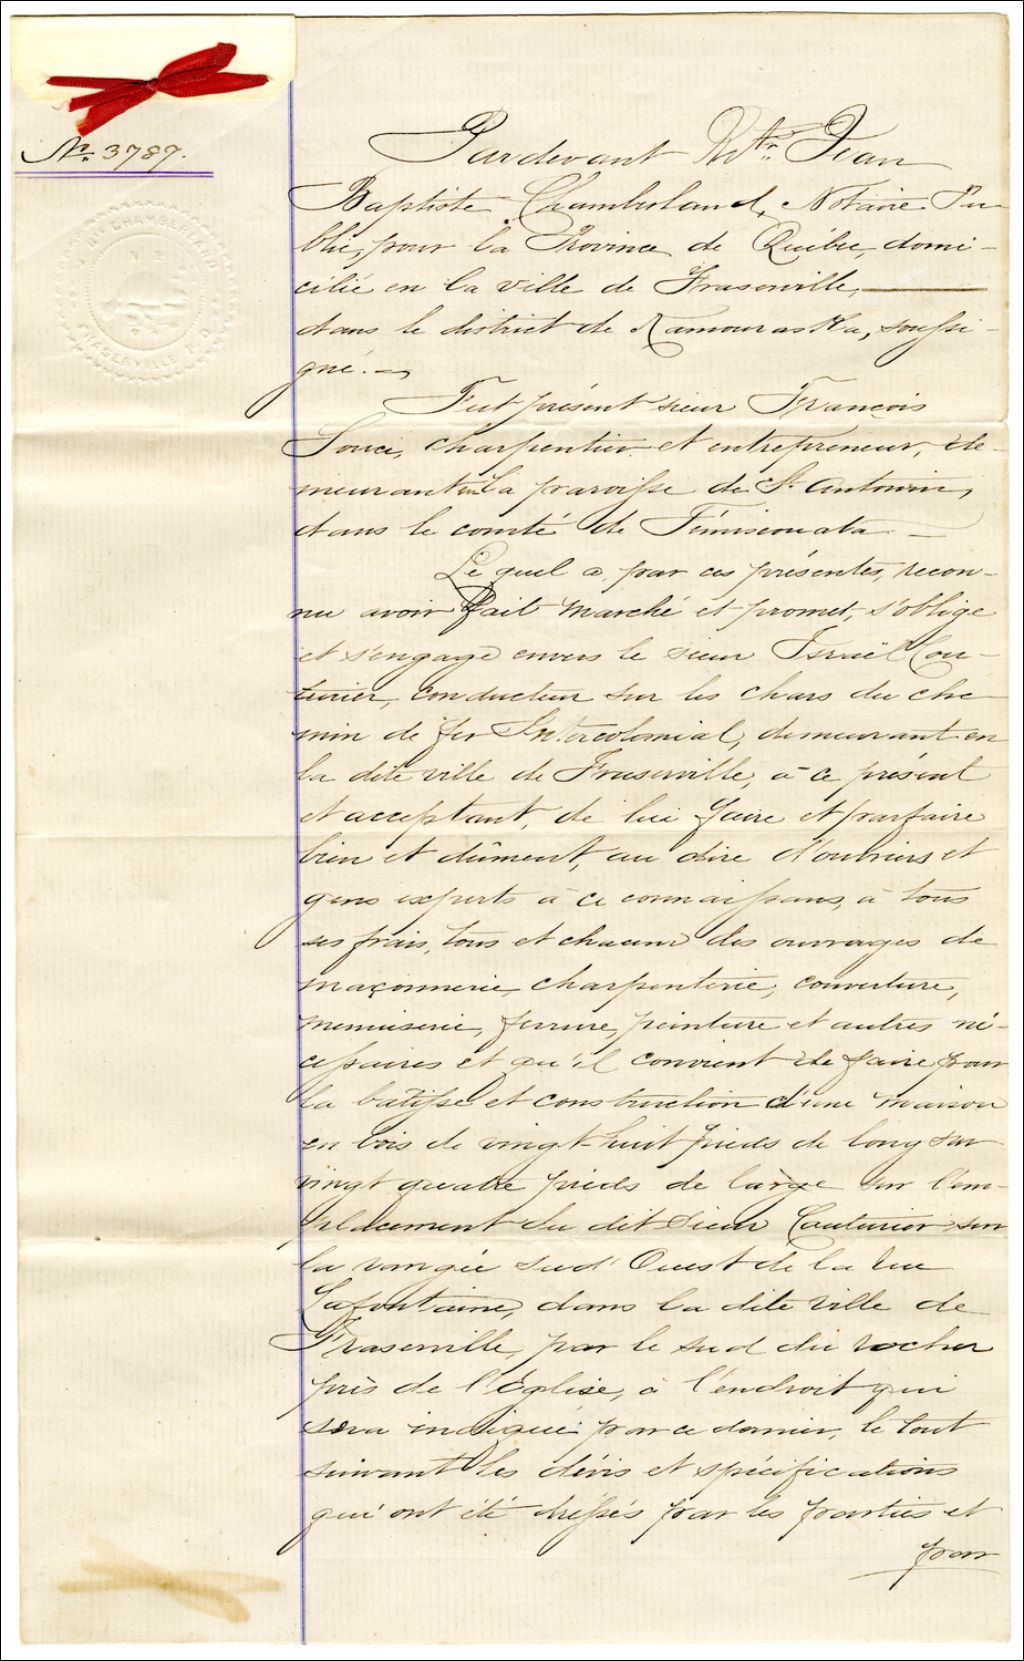 No. 3787.
Pardevant Mtre. Jean
Baptiste Chamberland, Notaire Pu-
blic, pour la Province de Québec, domi-
cilié en la ville de Fraserville,
dans le district de Kamouraska, soussi-
gné.
Fut présent sieur François
Souci, charpentier et entrepreneur, de-
meurant en la paroisse de St. Antonin,
dans le comté de Témiscouata.
Lequel a par ces présentes, recon-
nu avoir fait marché et promet, s'oblige
et s'engage envers le sieur Israël Cou-
turier, conducteur sur les chars du che
min de fer Intercolonial, demeurant en
la dite ville de Fraserville, à ce présent
et acceptant, de lui faire et parfaire
bien et dûment, au dire d'ouvriers et
gens experts à ce connaissans, à tous
ses frais, tous et chacun des ouvrages de
maçonnerie, charpenterie, couverture,
menuiserie, ferrure, peinture et autres né-
cessaires et qu'il convient de faire pour
la bâtisse et construction d'une maison
en bois de vingt-huit pieds de long sur
vingt quatre pieds de large sur l'em-
placement du dit Sieur Couturier sur
la rangée sud Ouest de la rue
Lafontaine, dans la dite ville de
Fraserville, par le sud du rocher
près de l'Eglise, à l'endroit qui
sera indiqué par ce dernier, le tout
suivant les dévis et spécifications
qui ont été dressés par les parties et
par